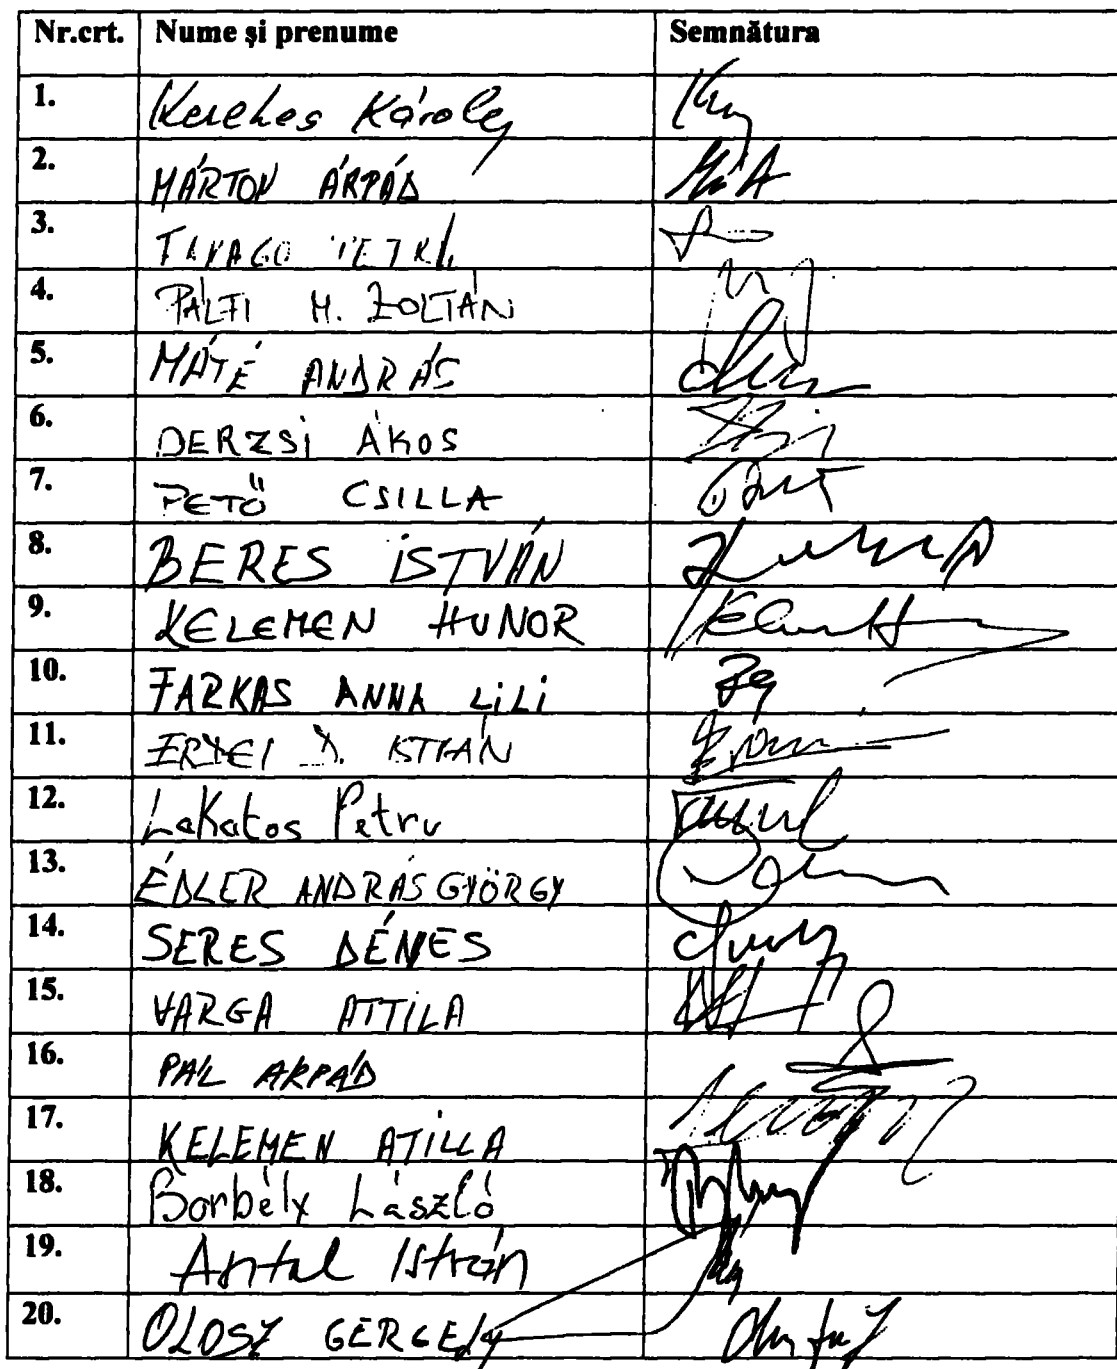 Nr.crt. Nume și prenume Semnătura
1. Kerekes Károly
2. MÁRTON ÁRPÁD
3.
4. PÁLFI M. ZOLTÁN
5. MÁTÉ ANDRÁS
6. DERZSI ÁKOS
7. PETŐ CSILLA
8. BERES ISTVÁN
9. KELEMEN HUNOR
10. FARKAS ANNA LILI
11. ISTVÁN
12. Lakatos Petru
13. ÉDLER ANDRÁS GYÖRGY
14. SERES DÉNES
15. VARGA ATTILA
16. PÁL ARPÁD
17. KELEMEN ATILLA
18. Borbély László
19. Antal István
20. OLOSZ GERGELY